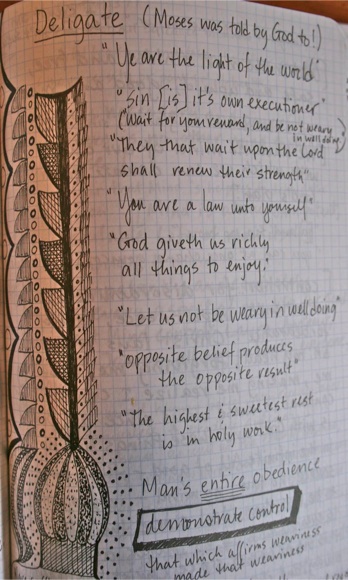 Deligate (Moses was told by God to!)
"Ye are the light of the world"
"Sin [is] it's own executioner"
(Wait for your reward, and be not weary
in well doing)
"They that wait upon the Lord
shall renew their strength"
"You are a law unto yourself"
"God giveth us richly
all things to enjoy."
"Let us not be weary in well doing"
"opposite belief produces
the opposite result"
"The highest & sweetest rest
is in holy work."
Man's entire obedience
demonstrate control
that which affirms weariness
made that weariness